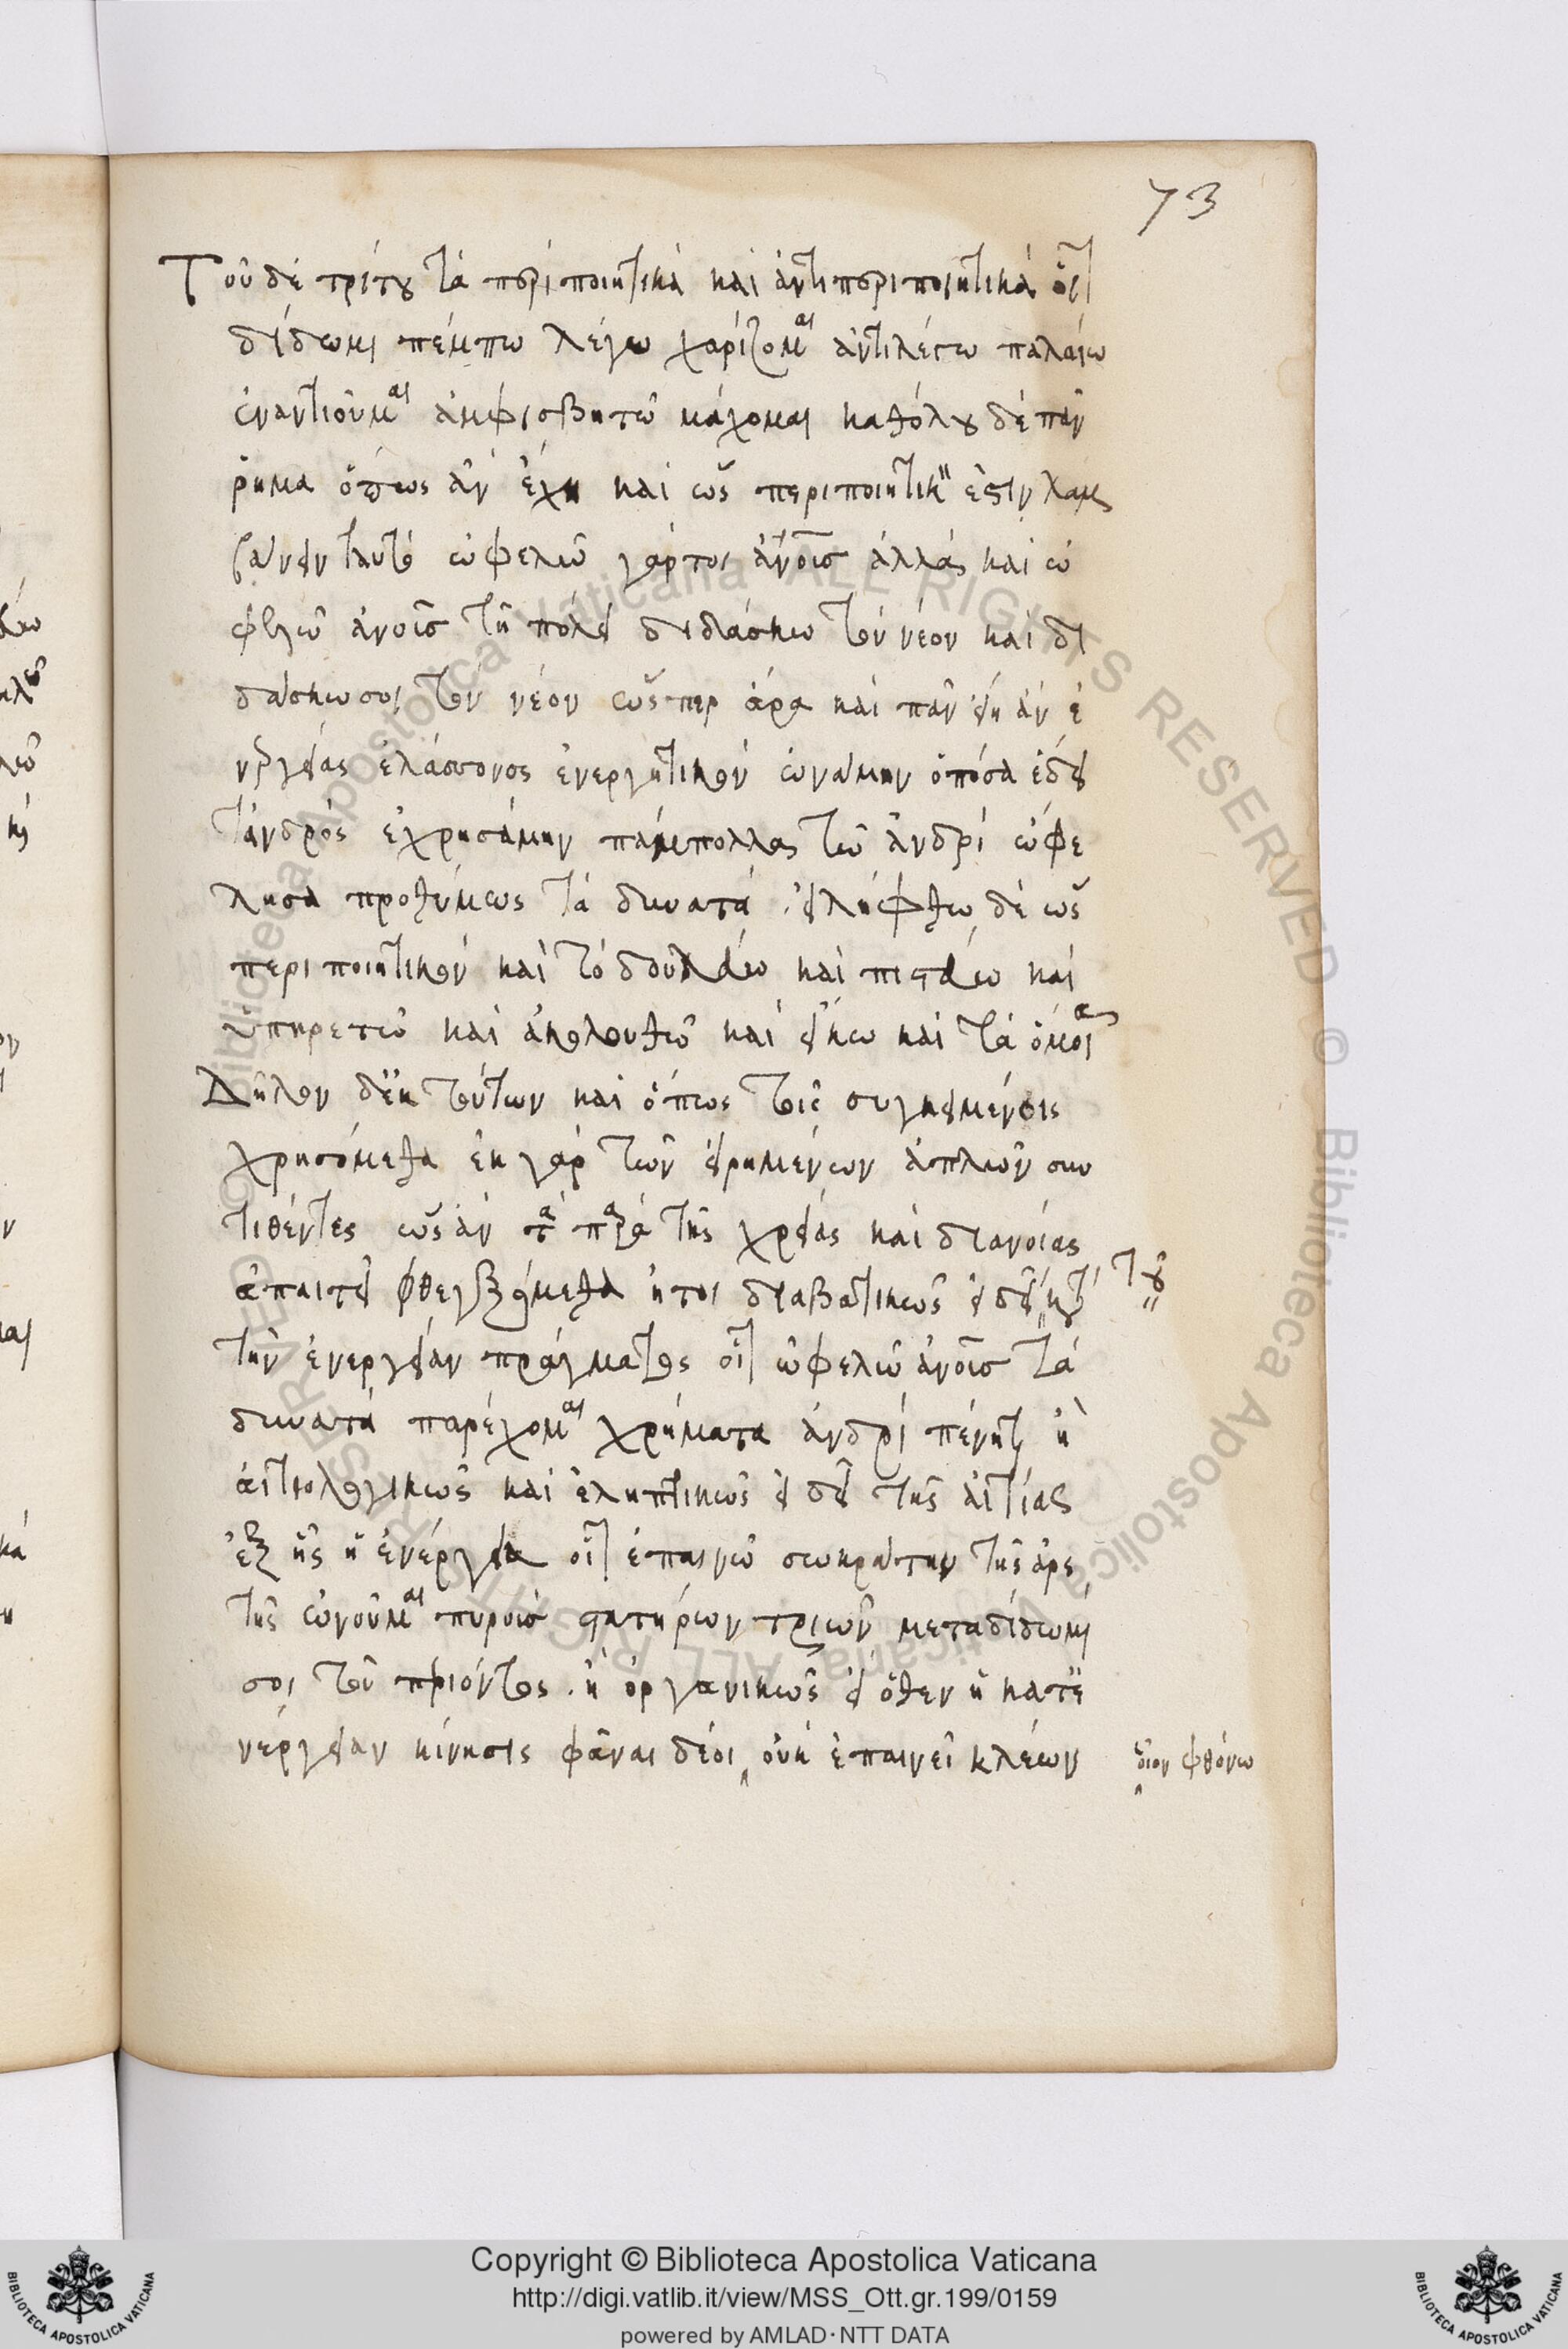 73
Τοῦ δὲ τρίτου τὰ περιποιητικὰ καὶ ἀντιπεριποιητικὰ οἷ
δίδωμι πέμπω λέγω χαρίζομαι ἀντιλέγω παλαίω
ἐναντιοῦμαι ἀμφισβητῶ μάχομαι καθόλου δὲ πᾶν
ῥῆμα ὅπως ἂν ἔχῃ καὶ ὡς περιποιητικὸν ἔστιν λαμ
βάνειν ταυτὸ ὠφελῶ ἀνοις ἀλλὰ καὶ ὠ
φελῶ ἀνοις τῇ πόλει διδάσκω τὸν νέον καὶ δι
δάσκω σοι τὸν νέον ὥσπερ ἄρα καὶ πᾶν εἴη ἂν ἐ
νεργείας ἐλάσσονος ἐνεργητικὸν ὠνάμην ὁπόσα ἔδει
τἀνδρὸς ἐχρησάμην πάμπολλα τῷ ἀνδρὶ ὠφέ
λησα προθύμως τὰ δυνατά. εἰλήφθω δὲ ὡς
περιποιητικὸν καὶ τὸ δουλεύω καὶ πιστεύω καὶ
ὑπηρετῶ καὶ ἀκολουθῶ καὶ εἴκω καὶ τὰ ὅμοια
Δῆλον δὲ ἐκ τούτων καὶ ὅπως τοῖς συγκειμένοις
χρησόμεθα ἐκ γὰρ τῶν εἰρημένων ἁπλῶν συν
τιθέντες ὡς ἂν τὰ παρὰ τῆς χρείας καὶ διανοίας
ἀπαιτεῖ φθεγξόμεθα ἤτοι διαβατικῶς εἰ δεῖ του
τὴν ἐνέργειαν πράγματος οἷ ὠφελῶ ἀνοις τὰ
δυνατὰ παρέχομαι χρήματα ἀνδρὶ πένητι ἢ
αἰτιολογικῶς καὶ ἐληπτικῶς εἰ δεῖ τῆς αἰτίας
ἐξ ἧς ἡ ἐνέργεια οἷ ἐπαινῶ σωκράτην τῆς ἀρε
τῆς ὠνοῦμαι πυροὺς στατήρων τριῶν μεταδίδωμί
σοι τοῦ πριόντος. ἢ ὀργανικῶς εἰ ὅθεν ἡ κατ' ἐ
νέργειαν κίνησις φᾶναι δέοι οὐκ ἐπαινεῖ κλέων
οἷον φθόνω
Copyright © Biblioteca Apostolica Vaticana
http://digi.vatlib.it/view/MSS_Ott.gr.199/0159
powered by AMLAD·NTT DATA